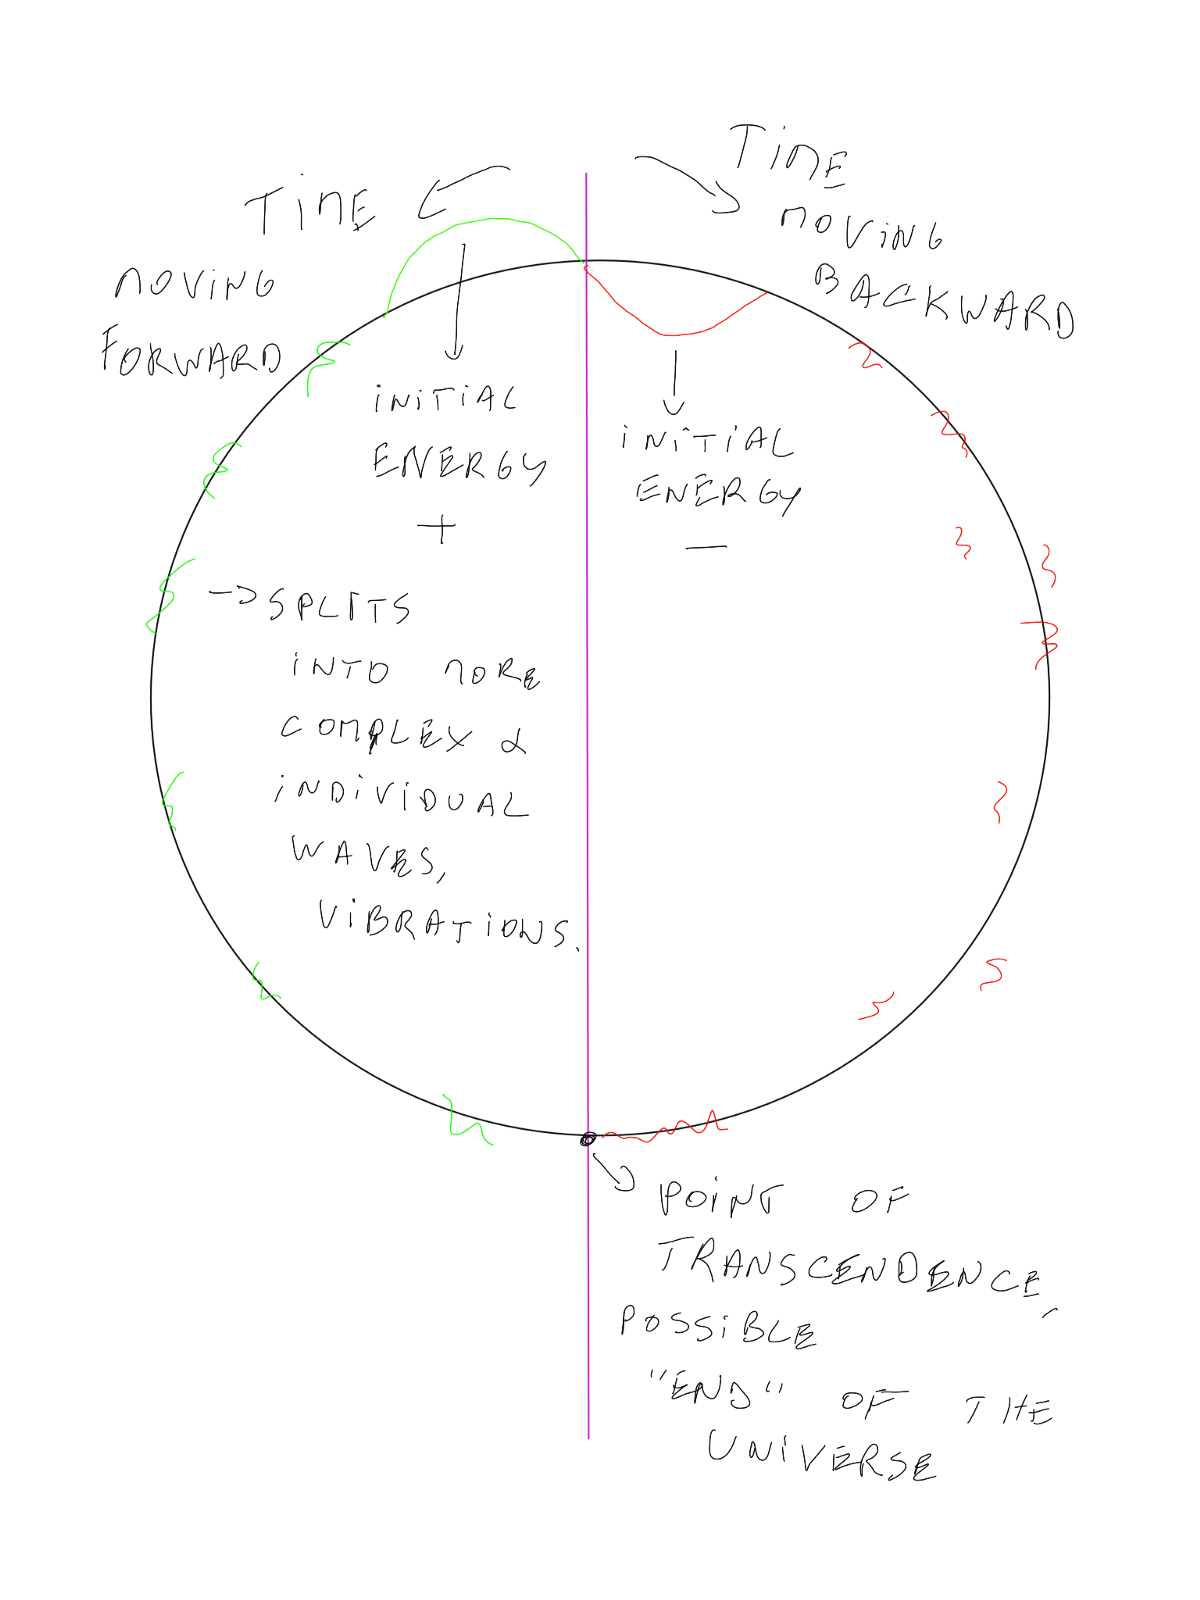 TIME
MOVING
FORWARD
TIME
MOVING
BACKWARD
INITIAL
ENERGY
+
INITIAL
ENERGY
-
→ SPLITS
INTO MORE
COMPLEX &
INDIVIDUAL
WAVES,
VIBRATIONS.
POINT OF
TRANSCENDENCE,
POSSIBLE
"END" OF THE
UNIVERSE